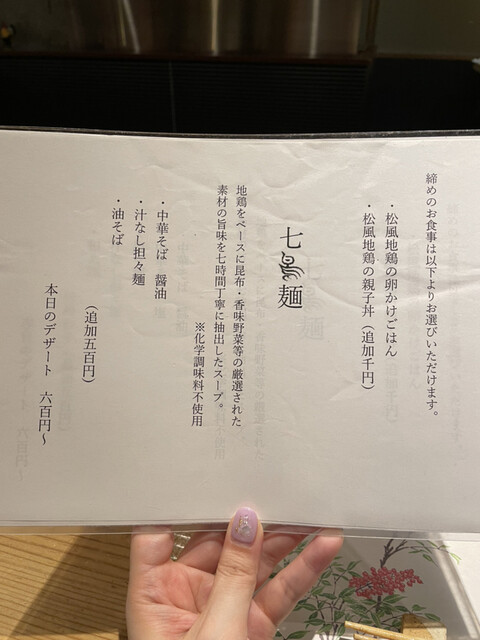 締めのお食事は以下よりお選びいただけます。
・松風地鶏の卵かけごはん
・松風地鶏の親子丼（追加千円）
七鳥麺
地鶏をベースに昆布・香味野菜等の厳選された
素材の旨味を七時間丁寧に抽出したスープ。
※化学調味料不使用
・中華そば　醤油
・汁なし担々麺
・油そば
（追加五百円）
本日のデザート　六百円〜